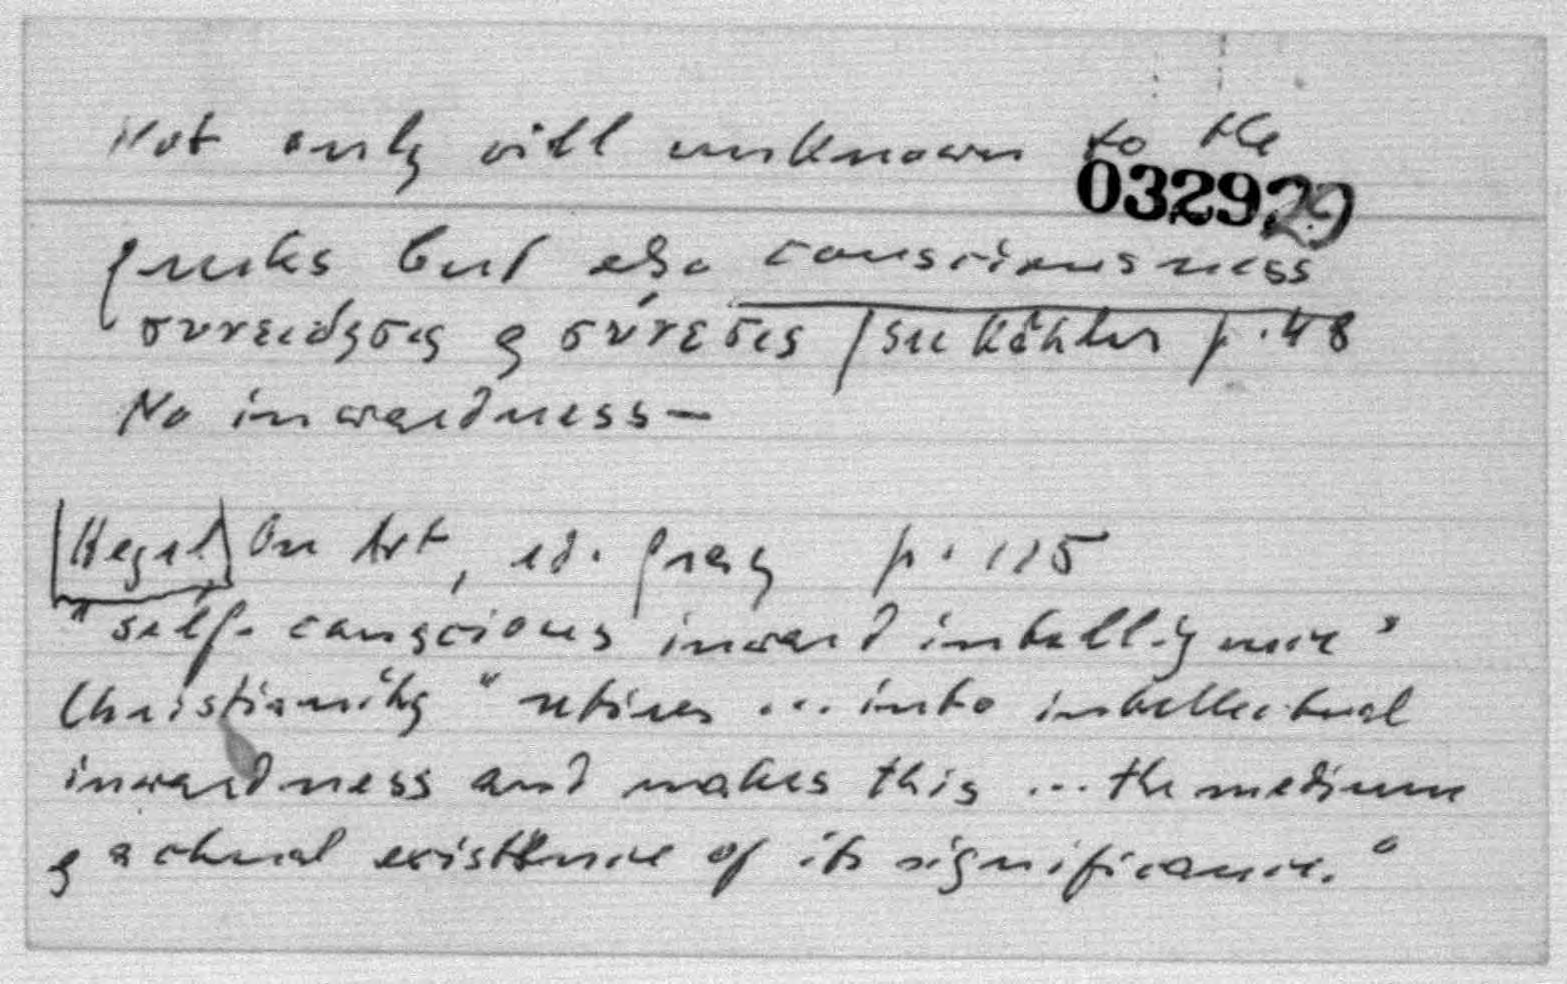 Not only will unknown to the
032929
Greeks but also consciousness
συνειδησις & σύνεσις /see Köhler p. 48
No inwardness—
Hegel On Art, ed. Gray p. 115
"self-conscious inward intelligence"
Christianity "retires ... into intellectual
inwardness and makes this ... the medium
& actual existence of its significance."